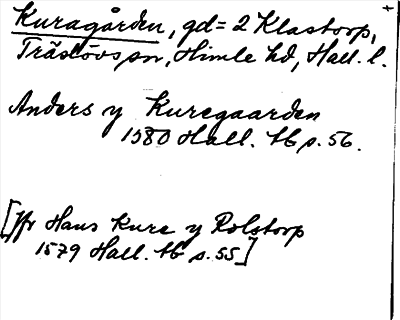 Kuragården, gd = 2 Klastorp,
Träslövs sn, Himle hd, Hall. l.
Anders y Kuregaarden
1580 Hall. tb s. 56.
[Jfr Hans Kure y Rolstorp
1579 Hall. tb s. 55]